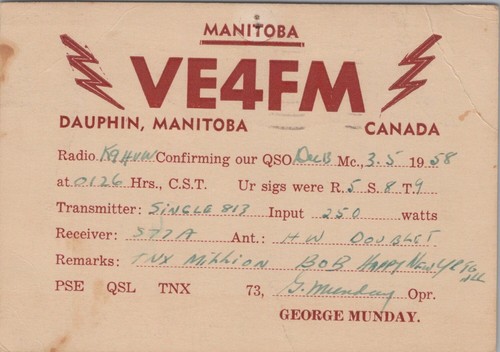 MANITOBA
VE4FM
DAUPHIN, MANITOBA CANADA
Radio K9HVW Confirming our QSO Mc., 3.5 1958
at 0126 Hrs., C.S.T. Ur sigs were R. 5 S. 8 T. 9
Transmitter: SINGLE 813 Input 250 watts
Receiver: S77A Ant.: HW DOUBLET
Remarks: TNX MILLION BOB HAPPY NEW YR TO ALL
PSE QSL TNX 73, G. Munday Opr.
GEORGE MUNDAY.